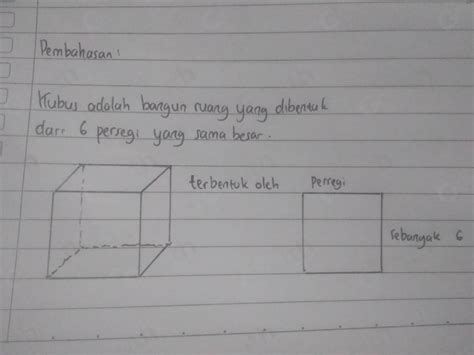 Pembahasan :
Kubus adalah bangun ruang yang dibentuk
dari 6 persegi yang sama besar.
terbentuk oleh persegi
sebanyak 6